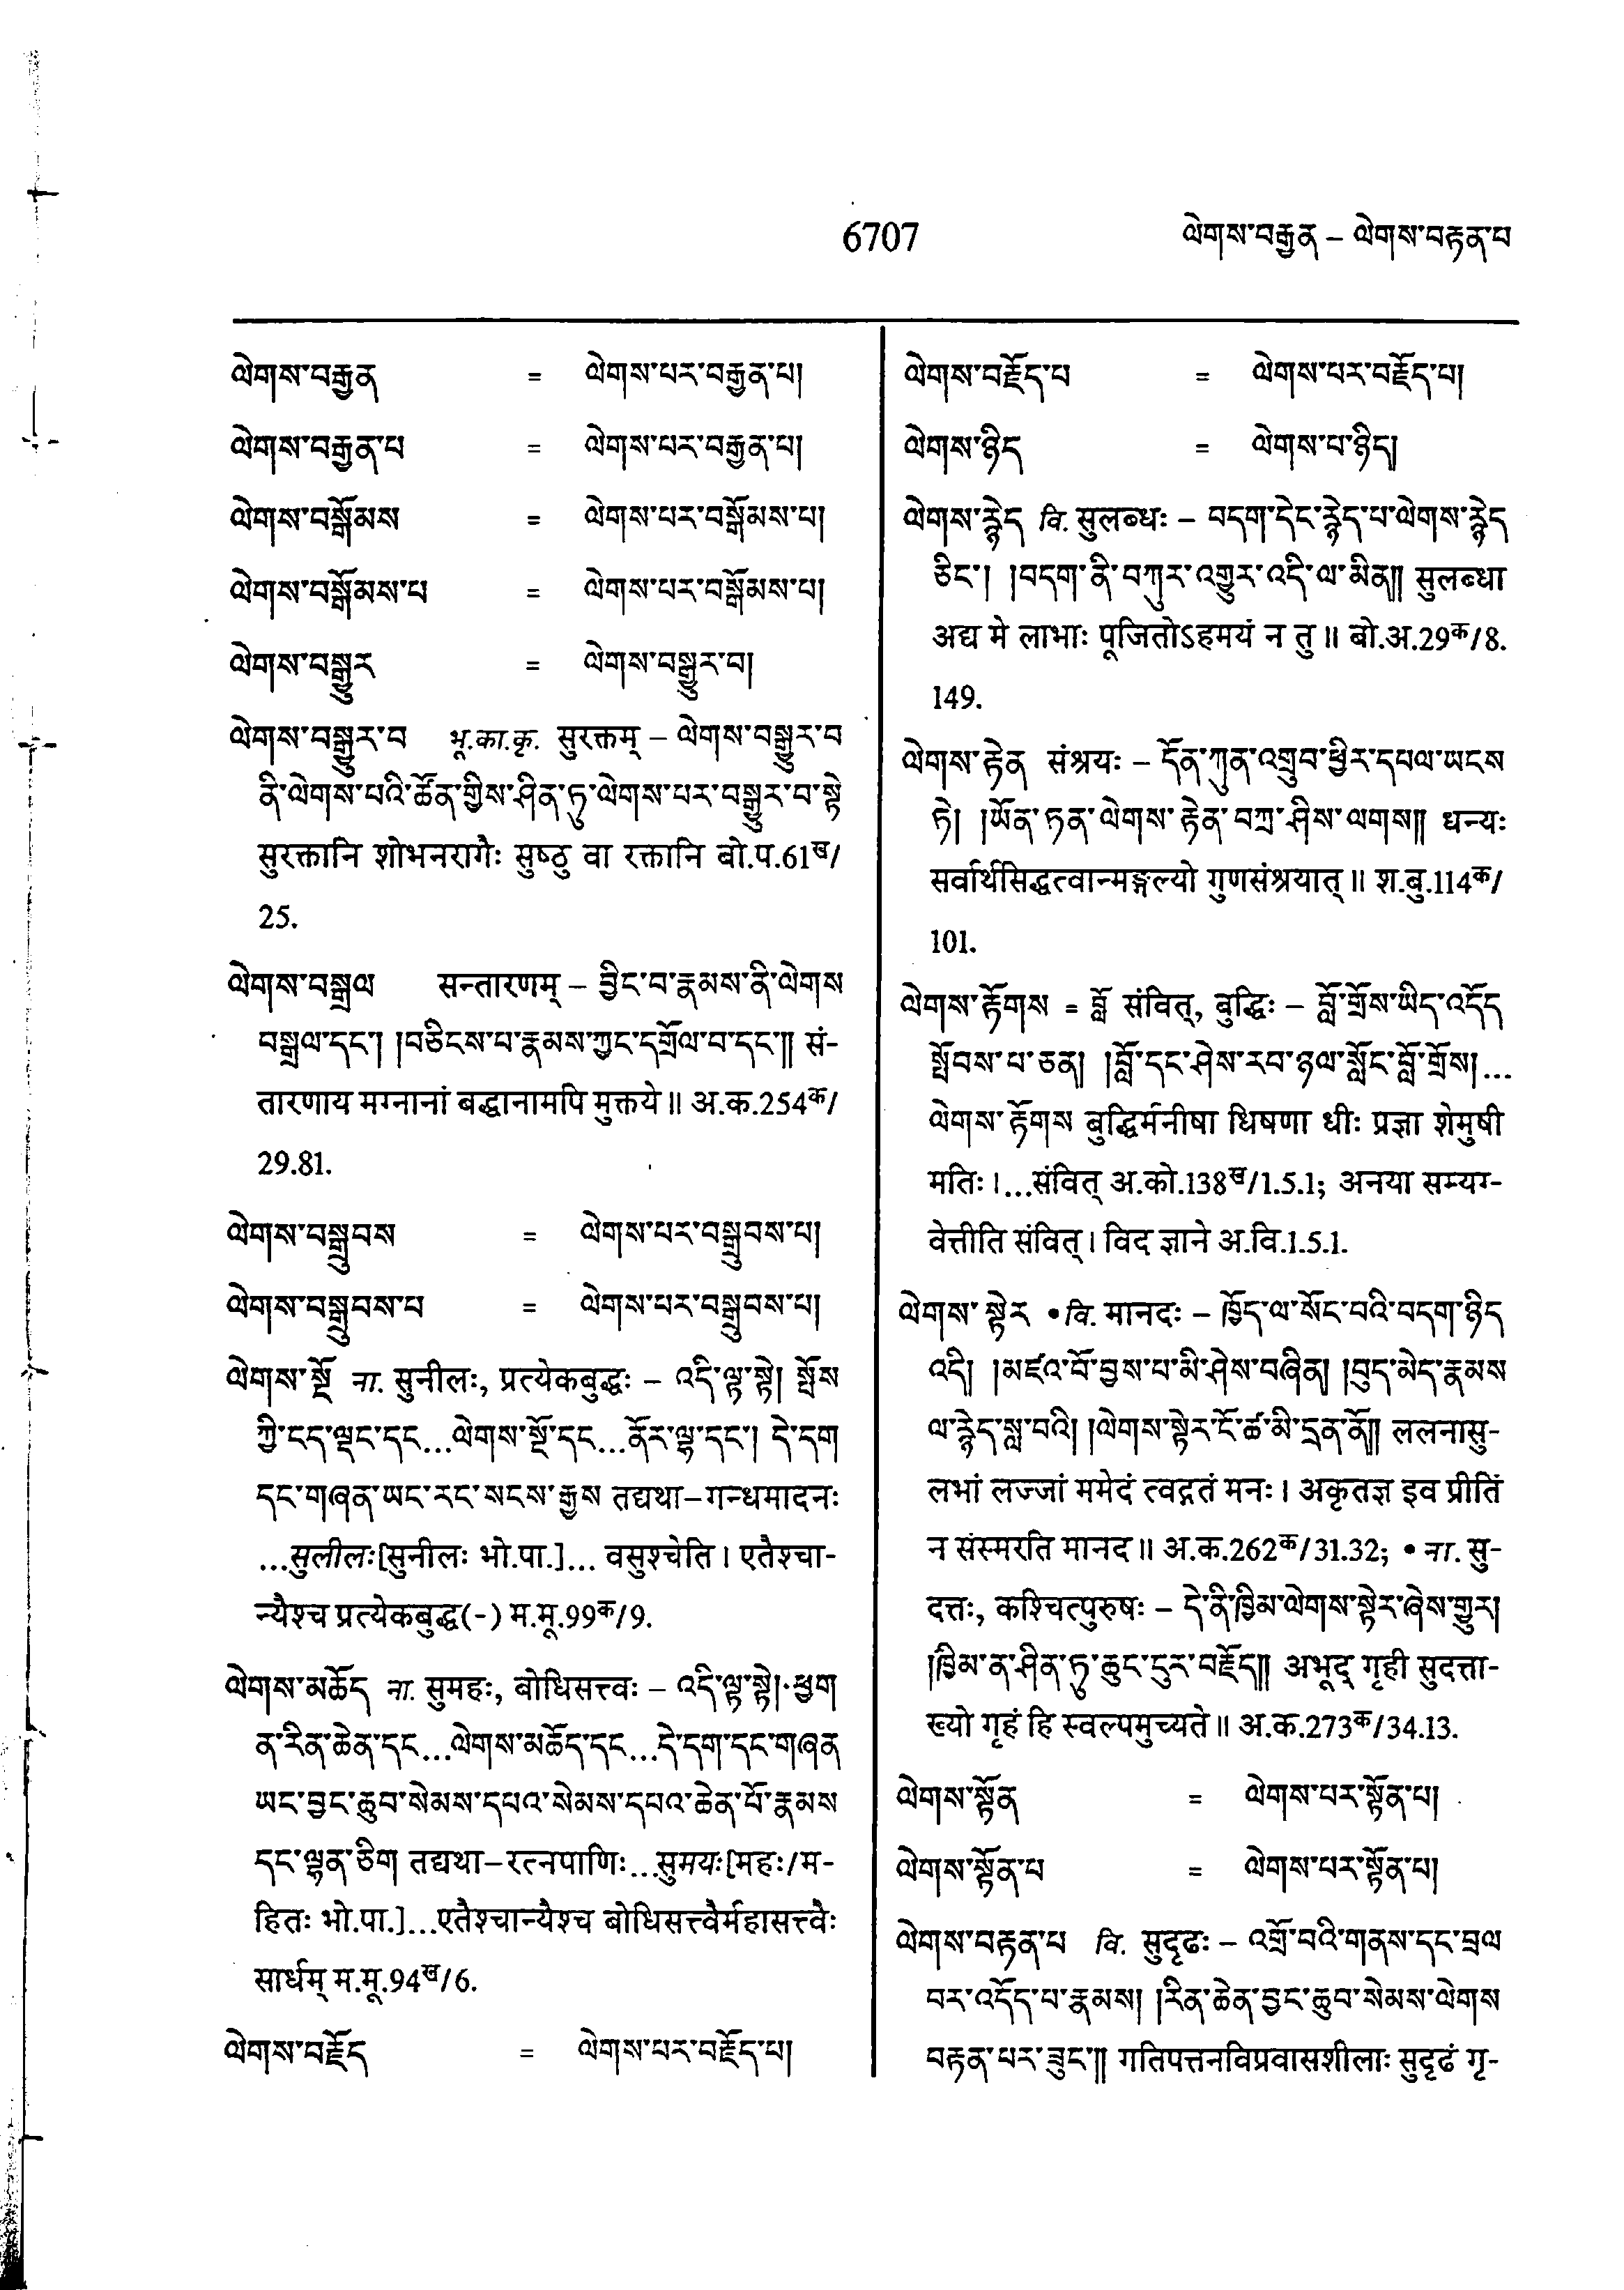 6707
ལེགས་བརྒྱན – ལེགས་བརྟན་པ
ལེགས་བརྒྱན = ལེགས་པར་བརྒྱན་པ།
ལེགས་བརྒྱན་པ = ལེགས་པར་བརྒྱན་པ།
ལེགས་བསྒོམས = ལེགས་པར་བསྒོམས་པ།
ལེགས་བསྒོམས་པ = ལེགས་པར་བསྒོམས་པ།
ལེགས་བསྒྱུར = ལེགས་བསྒྱུར་བ།
ལེགས་བསྒྱུར་བ भू.का.कृ. सुरक्तम् – ལེགས་བསྒྱུར་བ
ནི་ལེགས་པའི་ཚོན་གྱིས་ཤིན་ཏུ་ལེགས་པར་བསྒྱུར་བ་སྟེ
सुरक्तानि शोभनरागैः सुष्ठु वा रक्तानि बो.प.61ख/
25.
ལེགས་བསྒྲལ सन्तारणम् – བྱིང་བ་རྣམས་ནི་ལེགས
བསྒྲལ་དང་། །བཅིངས་བ་རྣམས་ཀྱང་དགྲོལ་བ་དང་།། सं-
तारणाय मग्नानां बद्धानामपि मुक्तये॥ अ.क.254क/
29.81.
ལེགས་བསྒྲུབས = ལེགས་པར་བསྒྲུབས་པ།
ལེགས་བསྒྲུབས་པ = ལེགས་པར་བསྒྲུབས་པ།
ལེགས་སྔོ ना. सुनीलः, प्रत्येकबुद्धः – འདི་ལྟ་སྟེ། སྤོས
ཀྱི་ངད་ལྡང་དང...ལེགས་སྔོ་དང...ནོར་ལྷ་དང་། དེ་དག
དང་གཞན་ཡང་རང་སངས་རྒྱས तद्यथा–गन्धमादनः
...सुलीलः[सुनीलः भो.पा.]... वसुश्चेति। एतैश्चा-
न्यैश्च प्रत्येकबुद्ध(-) म.मू.99क/9.
ལེགས་མཆོད ना. सुमहः, बोधिसत्त्वः – འདི་ལྟ་སྟེ། ཕྱག
ན་རིན་ཆེན་དང...ལེགས་མཆོད་དང...དེ་དག་དང་གཞན
ཡང་བྱང་ཆུབ་སེམས་དཔའ་སེམས་དཔའ་ཆེན་པོ་རྣམས
དང་ལྷན་ཅིག तद्यथा–रत्नपाणिः...सुमयः[महः/म-
हितः भो.पा.]...एतैश्चान्यैश्च बोधिसत्त्वैर्महासत्त्वैः
सार्धम् म.मू.94ख/6.
ལེགས་བརྗོད = ལེགས་པར་བརྗོད་པ།
ལེགས་བརྗོད་པ = ལེགས་པར་བརྗོད་པ།
ལེགས་ཉིད = ལེགས་པ་ཉིད།
ལེགས་རྙེད वि. सुलब्धः – བདག་དེང་རྙེད་པ་ལེགས་རྙེད
ཅིང་། །བདག་ནི་བཀུར་འགྱུར་འདི་ལ་མིན།། सुलब्धा
अद्य मे लाभाः पूजितोऽहमयं न तु॥ बो.अ.29क/8.
149.
ལེགས་རྟེན संश्रयः – དོན་ཀུན་འགྲུབ་ཕྱིར་དཔལ་ཡངས
ཏེ། །ཡོན་ཏན་ལེགས་རྟེན་བཀྲ་ཤིས་ལགས།། धन्यः
सर्वार्थसिद्धत्वान्मङ्गल्यो गुणसंश्रयात्॥ श.बु.114क/
101.
ལེགས་རྟོགས = བློ संवित्, बुद्धिः – བློ་གྲོས་ཡིད་འདོད
སྤོབས་པ་ཅན། །བློ་དང་ཤེས་རབ་ཉལ་སློང་བློ་གྲོས།...
ལེགས་རྟོགས बुद्धिर्मनीषा धिषणा धीः प्रज्ञा शेमुषी
मतिः।...संवित् अ.को.138ख/1.5.1; अनया सम्यग्-
वेत्तीति संवित्। विद ज्ञाने अ.वि.1.5.1.
ལེགས་སྟེར •वि. मानदः – ཁྱོད་ལ་སོང་བའི་བདག་ཉིད
འདི། །མཛའ་བོ་བྱས་པ་མི་ཤེས་བཞིན། །བུད་མེད་རྣམས
ལ་རྙེད་སླ་བའི། །ལེགས་སྟེར་ངོ་ཚ་མི་དྲན་ནོ།། ललनासु-
लभां लज्जां ममेदं त्वद्गतं मनः। अकृतज्ञ इव प्रीतिं
न संस्मरति मानद॥ अ.क.262क/31.32; • ना. सु-
दत्तः, कश्चित्पुरुषः – དེ་ནི་ཁྱིམ་ལེགས་སྟེར་ཞེས་གྱུར།
།ཁྱིམ་ན་ཤིན་ཏུ་ཆུང་ངུར་བརྗོད།། अभूद् गृही सुदत्ता-
ख्यो गृहं हि स्वल्पमुच्यते॥ अ.क.273क/34.13.
ལེགས་སྟོན = ལེགས་པར་སྟོན་པ།
ལེགས་སྟོན་པ = ལེགས་པར་སྟོན་པ།
ལེགས་བརྟན་པ वि. सुदृढः – འགྲོ་བའི་གནས་དང་བྲལ
བར་འདོད་པ་རྣམས། །རིན་ཆེན་བྱང་ཆུབ་སེམས་ལེགས
བརྟན་པར་ཟུང་།། गतिपत्तनविप्रवासशीलाः सुदृढं गृ-